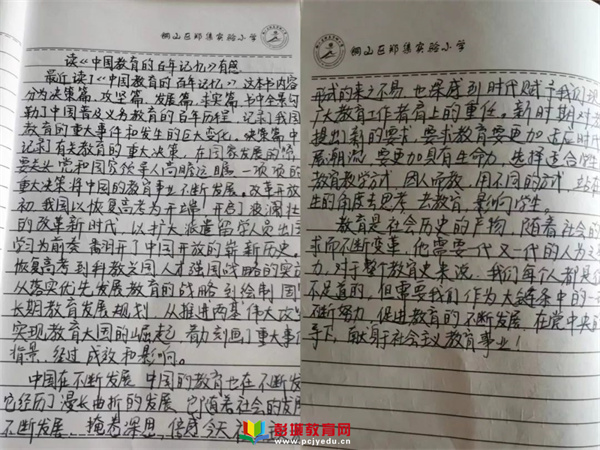 铜山区郑集实验小学
读《中国教育的百年记忆》有感
最近读了《中国教育的百年记忆》这本书内容
分为决策篇、攻坚篇、发展篇、求实篇。书中全景勾
勒了中国普及义务教育的百年历程,记录了我国
教育的重大事件和发生的巨大变化。决策篇中
记录了有关教育的重大决策,在国家发展的
要关头党和国家领导人高瞻远瞩,一项项的
重大决策将中国的教育事业不断发展。改革开放
初我国以恢复高考为开端,开启了波澜壮
的改革新时代,以扩大派遣留学员出国
学习为前奏翻开了中国开放的崭新历史。
恢复高考到科教兴国人才强国战略的实
从落实优先发展教育的战略到绘制国
长期教育发展规划,从推进两基伟大攻
实现教育大国的崛起,着力刻画了重大事件
背景、经过、成效和影响。
中国在不断发展,中国的教育也在不断发
它经历了漫长曲折的发展,它随着社会的发展
不断发展。掩卷深思,倍感今天
铜山区郑集实验小学
形式的来之不易,也深感到时代赋予我们
广大教育工作者肩上的重任。新时期对教
提出了新的要求,要求教育要更加适应时代
展潮流,要更加具有生命力,选择适合学生
教育教学方式,因人而教,用不同的方式,站在
生的角度去思考,去教育,影响学生。
教育是社会历史的产物,随着社会的
求而不断变革,他需要一代又一代的人为之
力,对于整个教育史来说,我们每个人都是
不足道的,但需要我们作为大链条中的一
不断努力,促进教育的不断发展,在党中央的
导下,献身于社会主义教育事业!
彭璀教育网
www.pcjyedu.cn